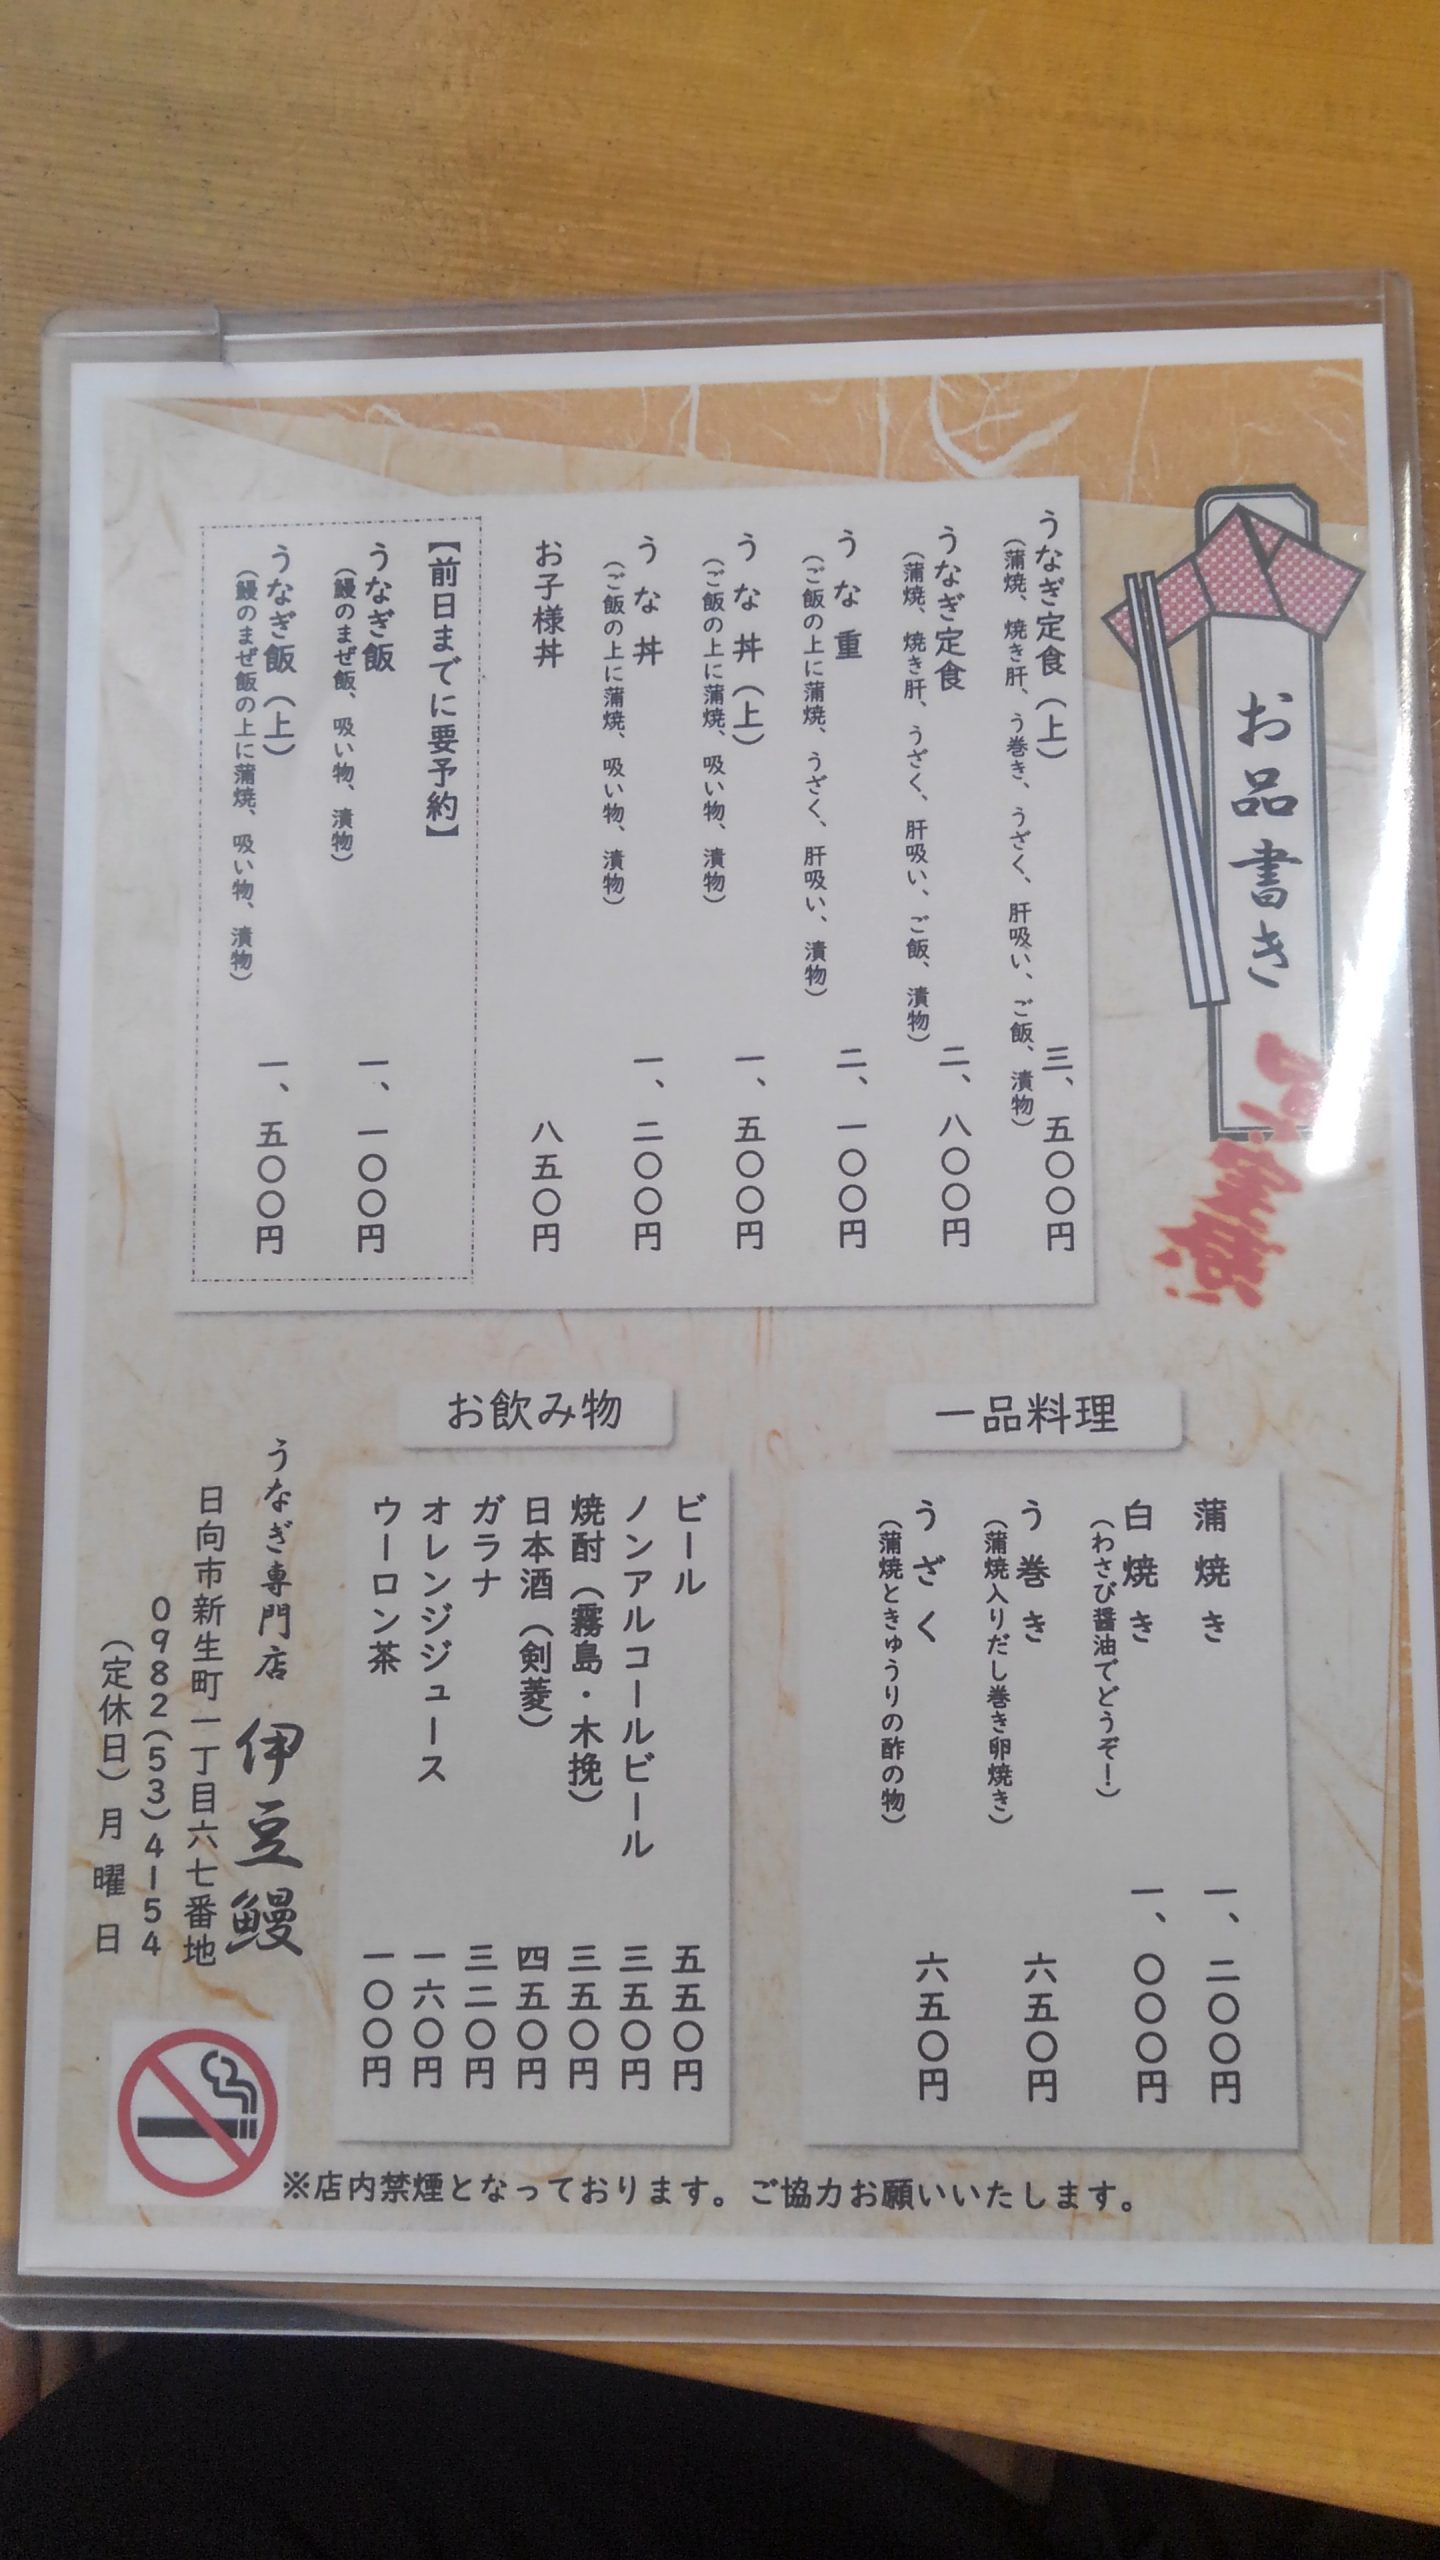 お品書き
うなぎ定食（上）
（蒲焼、焼き肝、う巻き、うざく、肝吸い、ご飯、漬物）
三、五〇〇円
うなぎ定食
（蒲焼、焼き肝、うざく、肝吸い、ご飯、漬物）
二、八〇〇円
うな重
（ご飯の上に蒲焼、うざく、肝吸い、漬物）
二、一〇〇円
うな丼（上）
（ご飯の上に蒲焼、吸い物、漬物）
一、五〇〇円
うな丼
（ご飯の上に蒲焼、吸い物、漬物）
一、二〇〇円
お子様丼
八五〇円
【前日までに要予約】
うなぎ飯
（鰻のまぜ飯、吸い物、漬物）
一、一〇〇円
うなぎ飯（上）
（鰻のまぜ飯の上に蒲焼、吸い物、漬物）
一、五〇〇円
一品料理
蒲焼き
一、二〇〇円
白焼き
（わさび醤油でどうぞ！）
一、〇〇〇円
う巻き
（蒲焼入りだし巻き卵焼き）
六五〇円
うざく
（蒲焼ときゅうりの酢の物）
六五〇円
お飲み物
ビール
五五〇円
ノンアルコールビール
三五〇円
焼酎（霧島・木挽）
三五〇円
日本酒（剣菱）
四五〇円
ガラナ
三二〇円
オレンジジュース
一六〇円
ウーロン茶
一〇〇円
うなぎ専門店 伊豆鰻
日向市新生町一丁目六七番地
0982(53)4154
（定休日）月曜日
※店内禁煙となっております。ご協力お願いいたします。